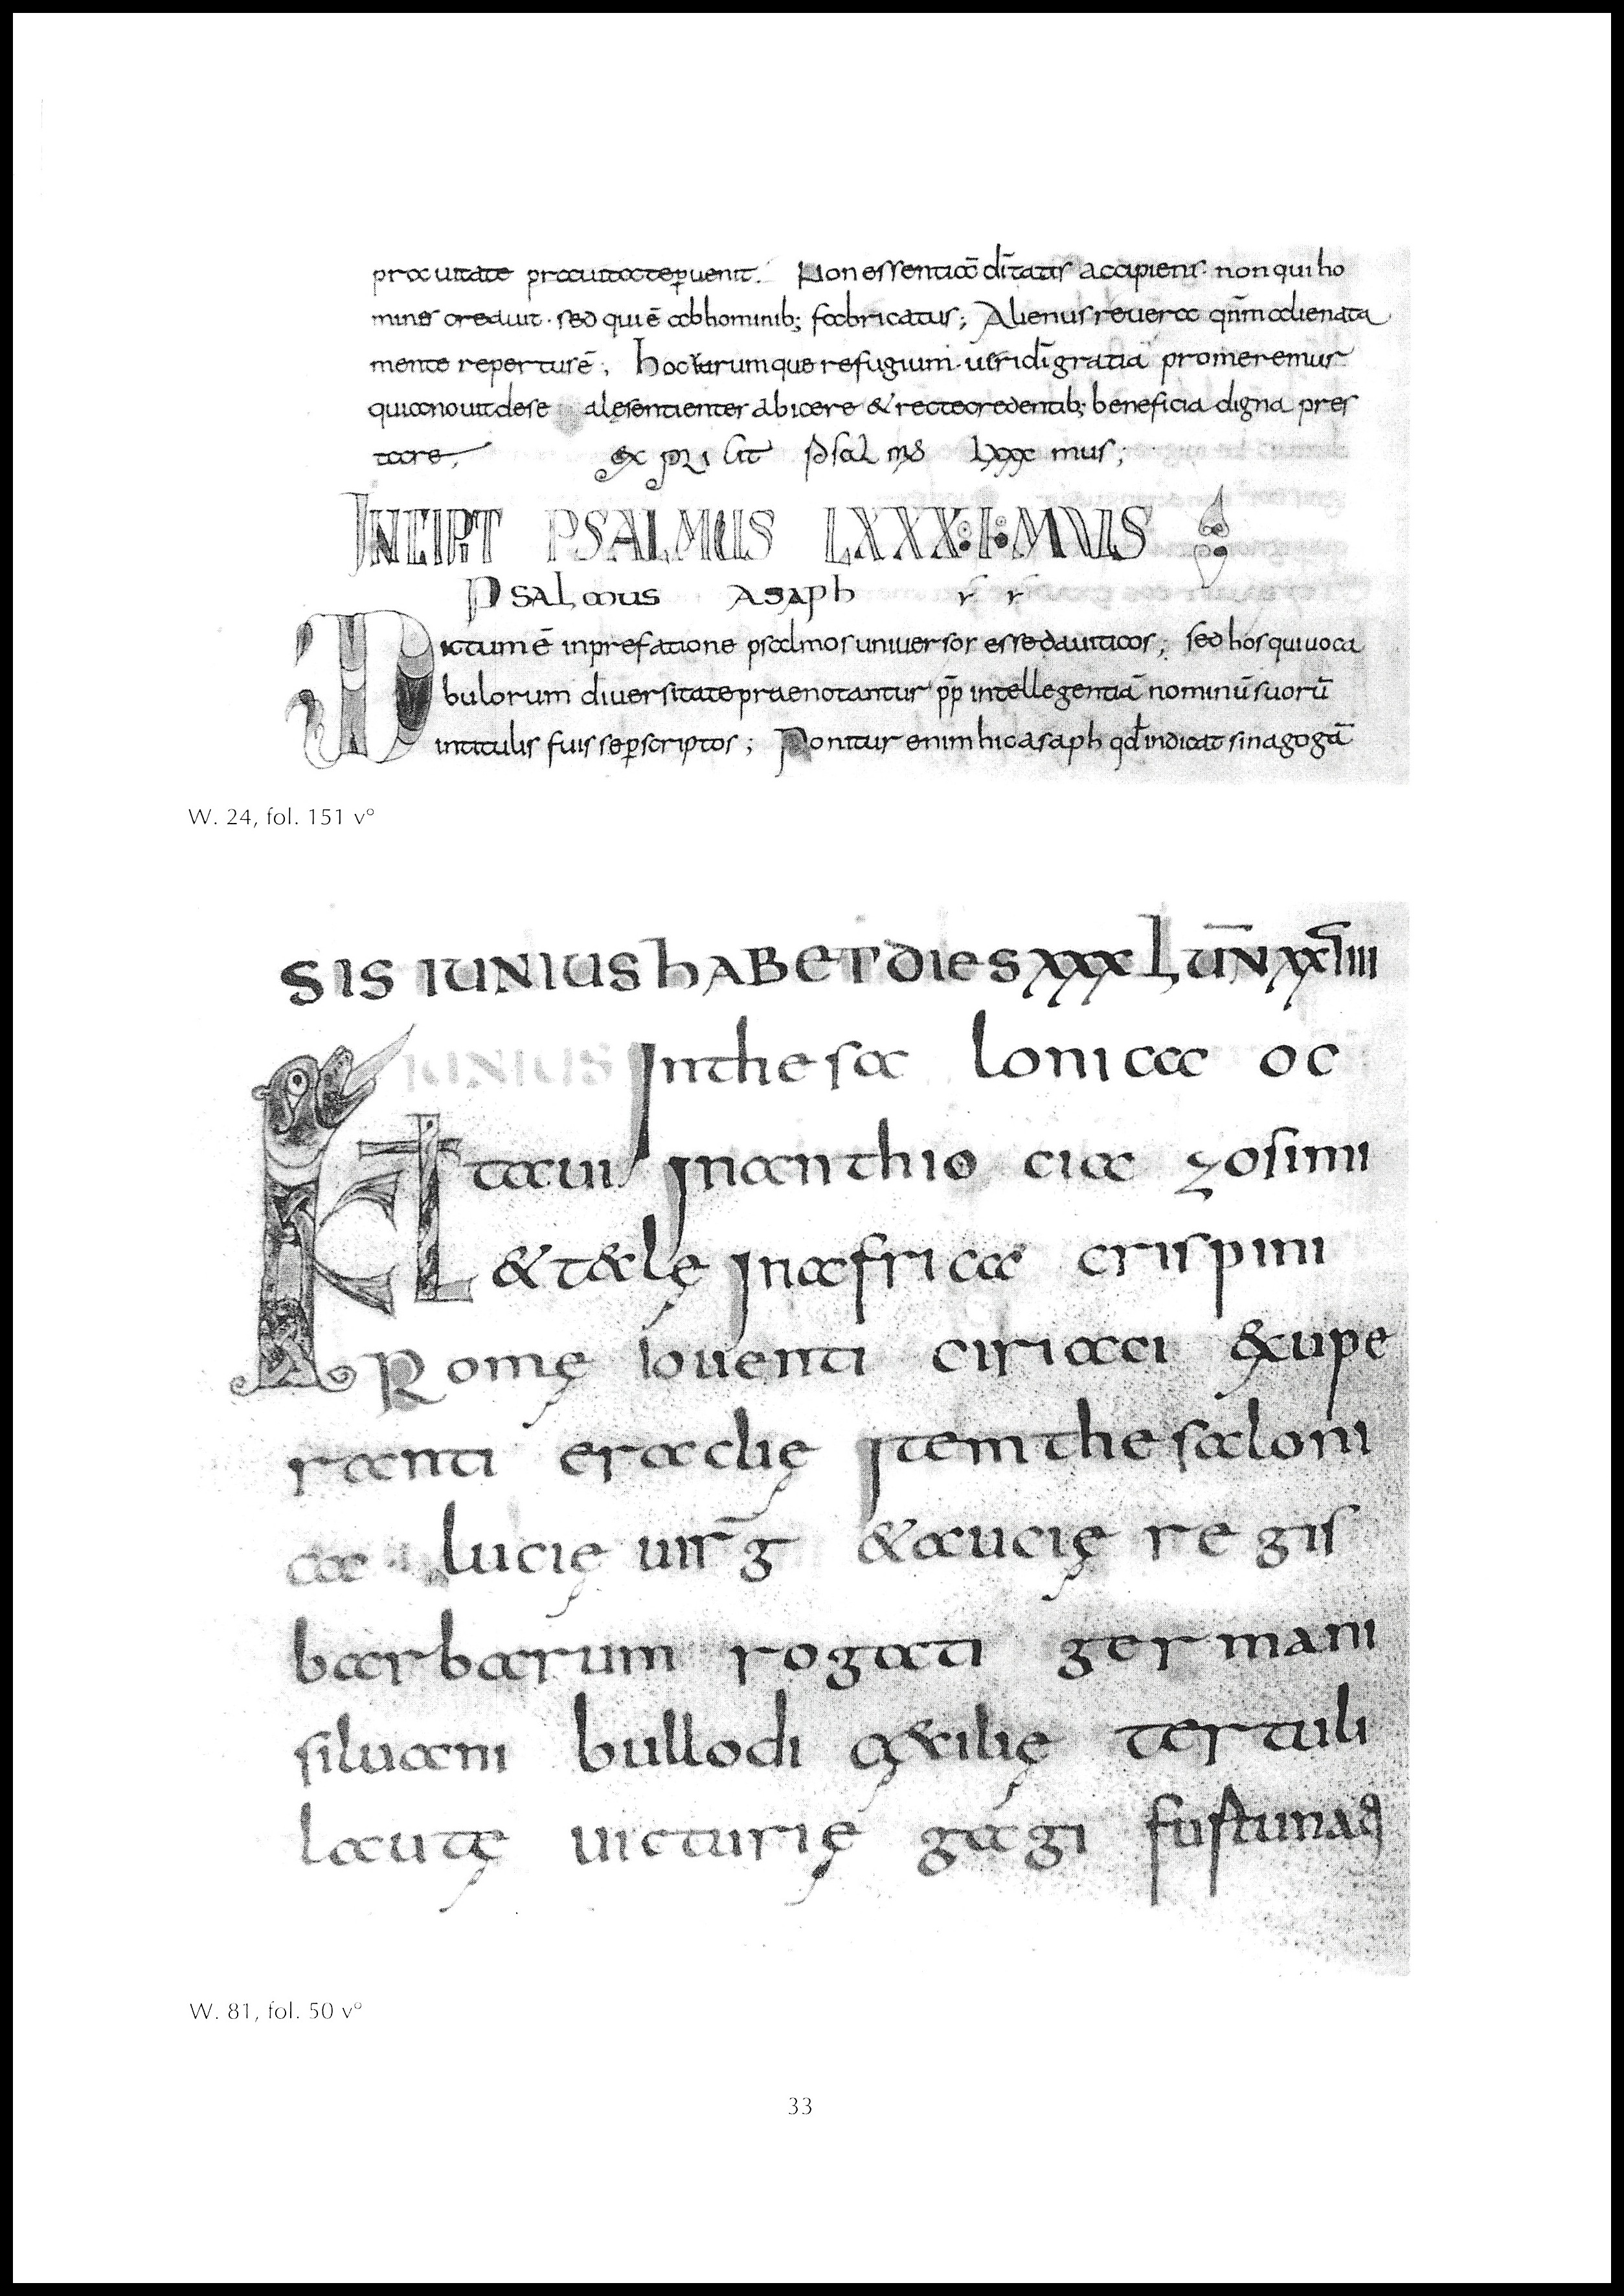 prauitate prauitate ꝑuenit. Non essentiā dītatis accipiens. non qui ho
mine creauit. sed qui ē ab hominib; fabricatus; Alienus reuera qnm alienata
mente repertus ē; hoc refugium. gratiā promeremur
quia nouit de se abicere & recte credentib; beneficia digna pres
tare; psalms lxxx mus;
INCIPIT PSALMUS LXXX:I:MUS
PSALmus Asaph
Dictum ē in prefatione psalmos uniuersor esse dauiticos; sed hos qui uoca
bulorum diuersitate praenotantur pp intellegentiā nominū suorū
in titulis fuisse ꝑscriptos; Ponitur enim hic asaph qđ indicat sinagogā
W. 24, fol. 151 v°
SIS IUNIUS hABET DIES XXX LUN̄ XXVIIII
IUNIUS In thesa lonica oc
KL taui In anthio cia zosimi
& talę In africa crispini
Romę iouenti ciriaci exupe
ranti eraclię Item thesaloni
ca lucię uirḡ & aucię regis
barbarum rogati germani
siluani bullodi tertuli
lautę uicturię gagi
W. 81, fol. 50 v°
33